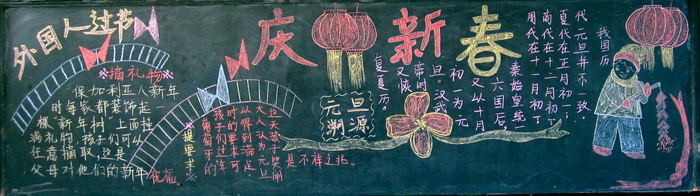 外国人过节
摘礼物
保加利亚人新年
时每家都装饰起一
棵新年树，上面挂
满礼物，孩子们可以
在高摘取，这是
父母对他们的新年祝福。
提要求
葡萄牙的
孩子们过年
时的要求可
以得到满足，
大人认为元旦
这天孩子哭闹
是不祥之兆。
庆新春
元旦
溯源
我国历
代元旦并不一致，
夏代在正月初一；
商代在十二月初一；
周代在十一月初一；
秦始皇统一
六国后，
又以十月
初一为元
旦，汉武
帝时
又恢
复夏历。